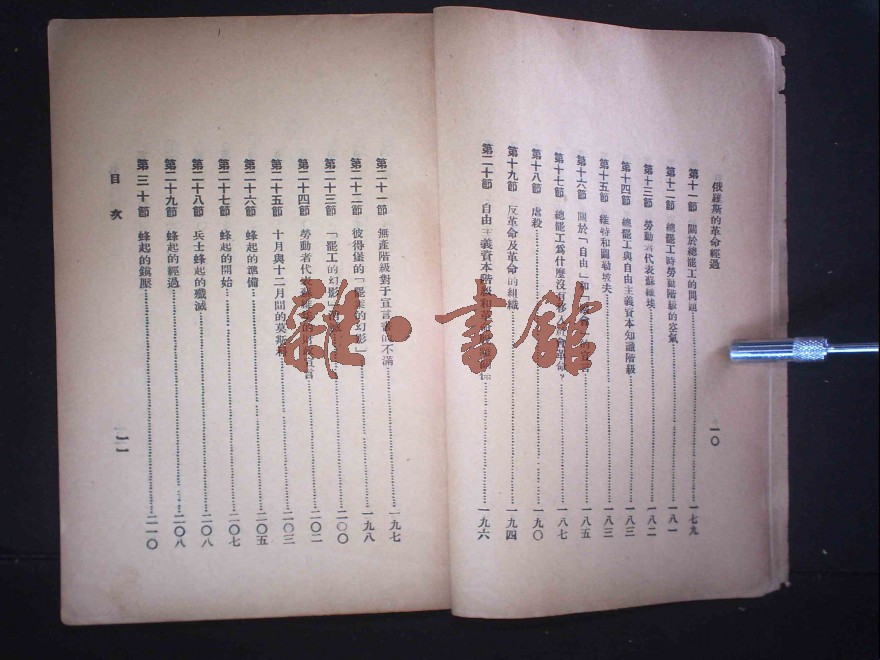 俄羅斯的革命經過
一〇
第十一節 關於總罷工的問題……一七九
第十二節 總罷工時勞動階級的空氣……一八一
第十三節 勞動者代表蘇維埃……一八二
第十四節 總罷工與自由主義資本知識階級……一八三
第十五節 維特和圖勒坡夫……一八三
第十六節 關於「自由」和……一八五
第十七節 總罷工爲什麼沒有移入……革命?……一八七
第十八節 虐殺……一九〇
第十九節 反革命及革命的組織……一九四
第二十節 自由主義資本階級和革……一九六
第二十一節 無產階級對于宣言書的不滿……一九七
第二十二節 彼得堡的「罷工的幻影」……一九八
第二十三節 「罷工的幻影」……二〇〇
第二十四節 勞動者代表蘇維埃的……宣言……二〇二
第二十五節 十月與十二月間的莫斯科……二〇三
第二十六節 蜂起的準備……二〇五
第二十七節 蜂起的開始……二〇七
第二十八節 兵士蜂起的殲滅……二〇八
第二十九節 蜂起的經過……二〇八
第三十節 蜂起的鎮壓……二一〇
目次
一一
雜·書館